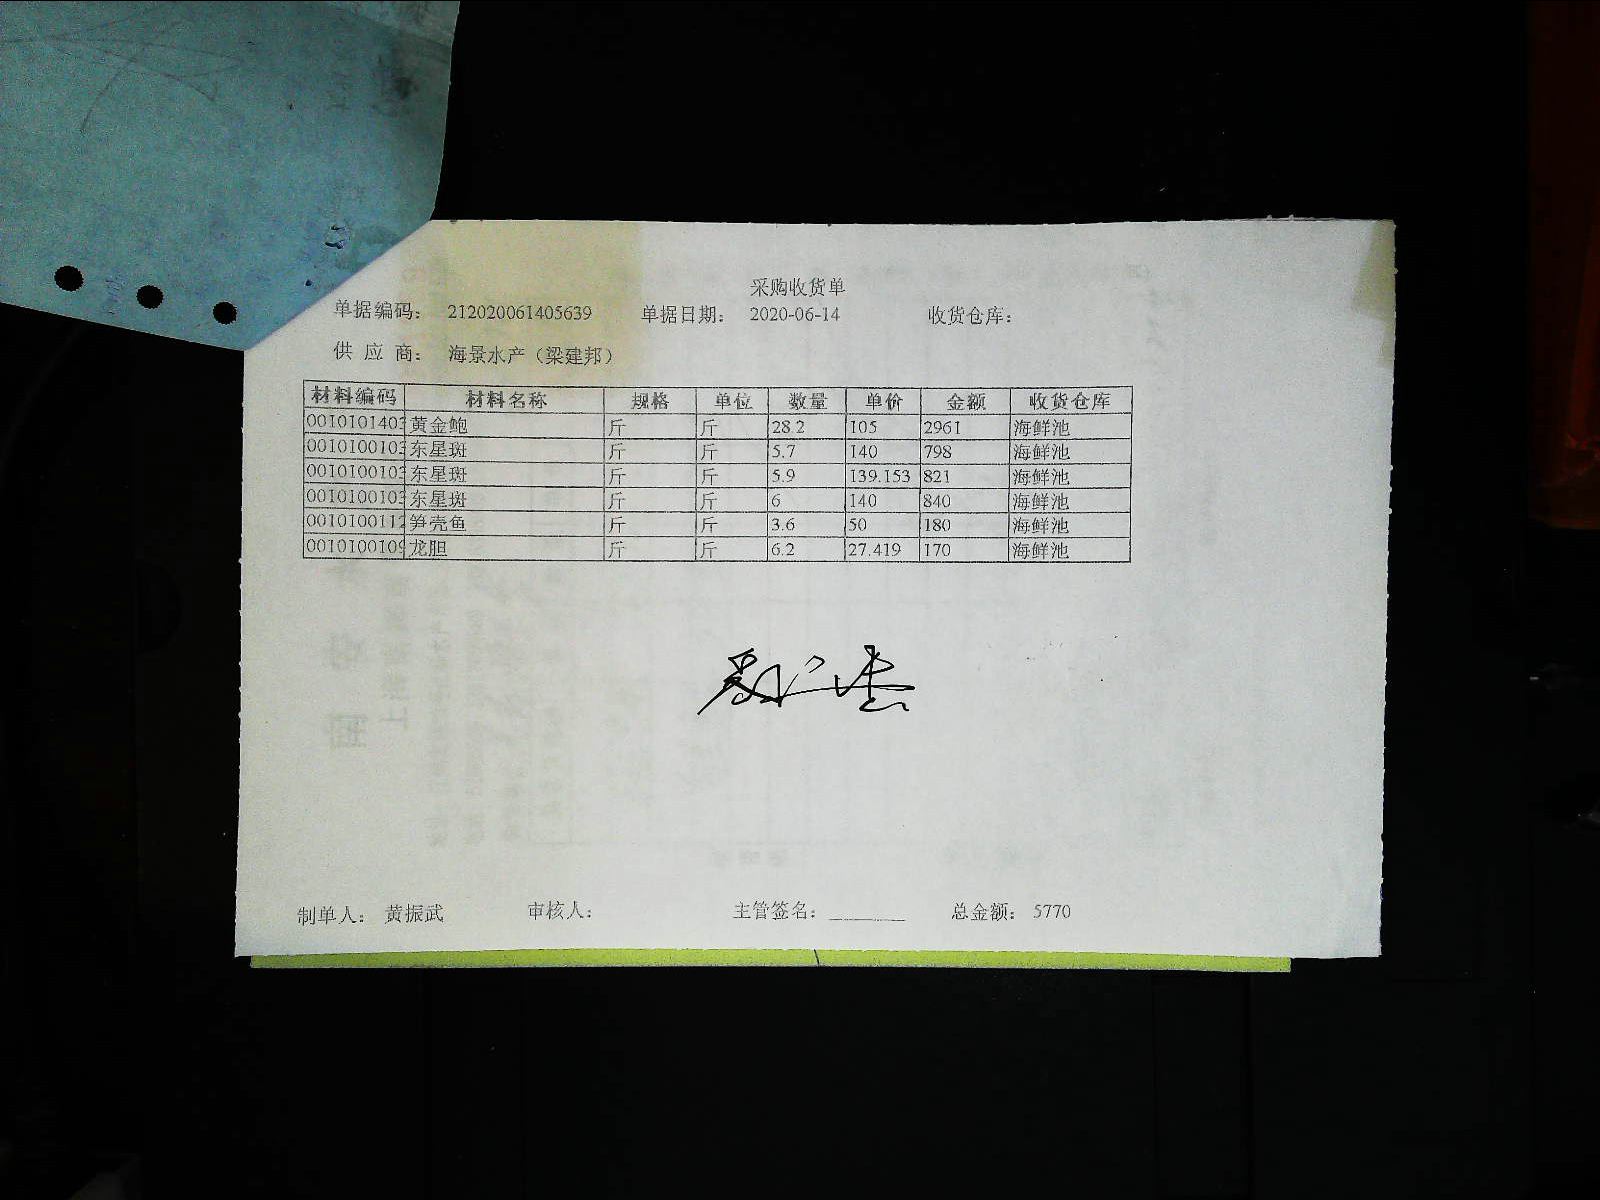 采购收货单
单据编码： 212020061405639 单据日期： 2020-06-14 收货仓库：
供 应 商： 海景水产（梁建邦）
材料编码 材料名称 规格 单位 数量 单价 金额 收货仓库
0010101403 黄金鲍 斤 斤 28.2 105 2961 海鲜池
0010100103 东星斑 斤 斤 5.7 140 798 海鲜池
0010100103 东星斑 斤 斤 5.9 139.153 821 海鲜池
0010100103 东星斑 斤 斤 6 140 840 海鲜池
0010100112 笋壳鱼 斤 斤 3.6 50 180 海鲜池
0010100109 龙胆 斤 斤 6.2 27.419 170 海鲜池
制单人： 黄振武 审核人： 主管签名： 总金额： 5770